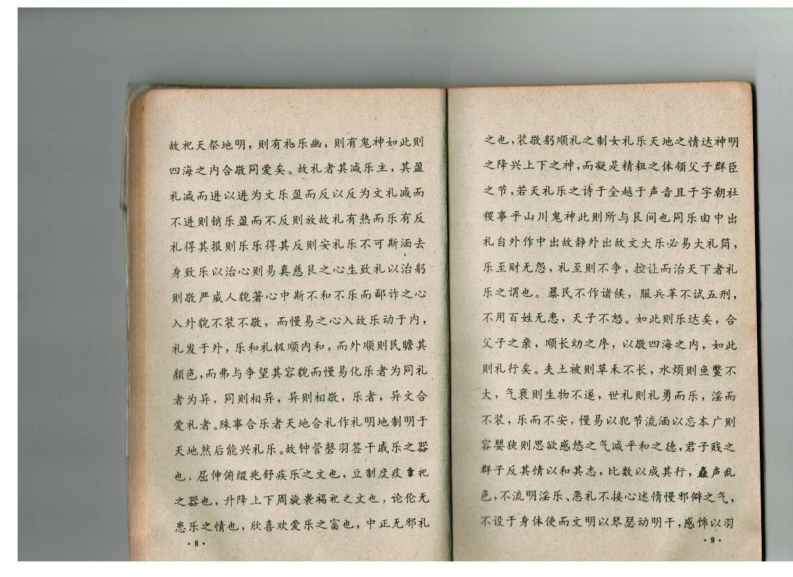 故祀天祭地明，则有礼乐幽，则有鬼神如此则
四海之内合敬同爱矣。故礼者其减乐主，其盈
礼减而进以进为文乐盈而反以反为文礼减而
不进则销乐盈而不反则放故礼有热而乐有反
礼得其报则乐乐得其反则安礼乐不可斯涵去
身致乐以治心则易真慈艮之心生致礼以治躬
则敬严威人貌著心中斯不和不乐而鄙诈之心
入外貌不装不敬，而慢易之心入故乐动于内，
礼发于外，乐和礼极顺内和，而外顺则民瞻其
颜色，而弗与争望其容貌而慢易化乐者为同礼
者为异，同则相异，异则相敬，乐者，异文合
爱礼者。殊事合乐者天地合礼作礼明地制明于
天地然后能兴礼乐。故钟管磬羽签干戚乐之器
也，屈伸俯缀兆舒疾乐之文也，豆制度疚章祀
之器也，升降上下周旋裘褐祀之文也，论伦无
患乐之情也，欣喜欢爱乐之富也，中正无邪礼
·8·
之也，装敬躬顺礼之制女礼乐天地之情达神明
之降兴上下之神，而凝是精粗之体领父子群臣
之节，若天礼乐之诗于全越于声音且于字朝社
稷事乎山川鬼神此则所与艮间也同乐由中出
礼自外作中出故静外出故文大乐必易大礼简，
乐至财无怨，礼至则不争，控让而治天下者礼
乐之谓也。暴民不作诸候，服兵革不试五刑，
不用百姓无患，天子不怒。如此则乐达矣，合
父子之亲，顺长幼之序，以敬四海之内，如此
则礼行矣。夫土被则草禾不长，水烦则鱼鳖不
大，气衰则生物不遂，世礼则礼勇而乐，淫而
不装，乐而不安，慢易以犯节流涵以忘本广则
容婴狭则思欲感悠之气减平和之德，君子贱之
群子反其情以和其志，比数以成其行，矗声乱
色，不流明淫乐、恶礼不接心述惰慢邪僻之气，
不设于身体使而文明以琴瑟动明干，感饰以羽
·9·